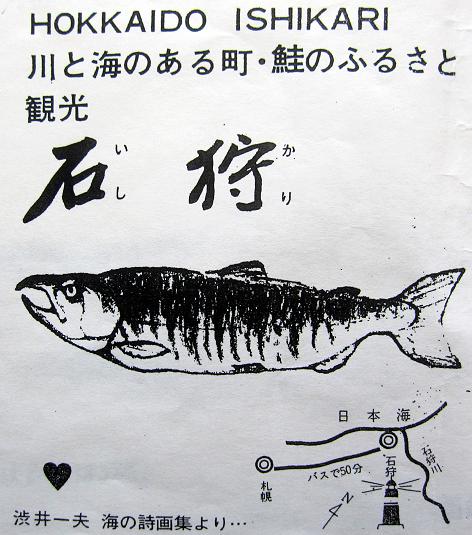 HOKKAIDO ISHIKARI
川と海のある町・鮭のふるさと
観光
石狩
いし かり
日本海
石狩
石狩川
バスで50分
札幌
N
渋井一夫 海の詩画集より…